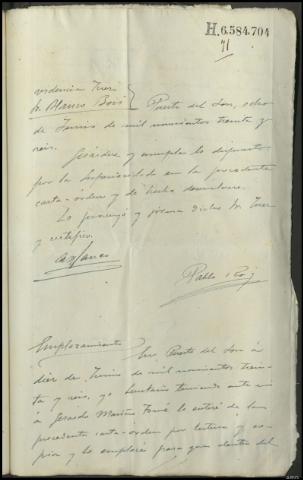 H.6.584.704
71
videncia Juez
Sr. Blanco Boix Puerto del Son, ocho
de Junio de mil novecientos treinta y
seis.
Guárdese y cumpla lo dispuesto
por la Superioridad en la precedente
carta-orden y de hecho devuélvase.
Lo proveyó y firma dicho Sr. Juez
y certifico.
Blanco
Pablo
Emplazamiento En Puerto del Son á
diez de Junio de mil novecientos trein-
ta y seis, yo Secretario teniendo ante mí
á Gerardo le enteré de la
precedente carta-orden por lectura y co-
pia y le emplacé para que dentro del